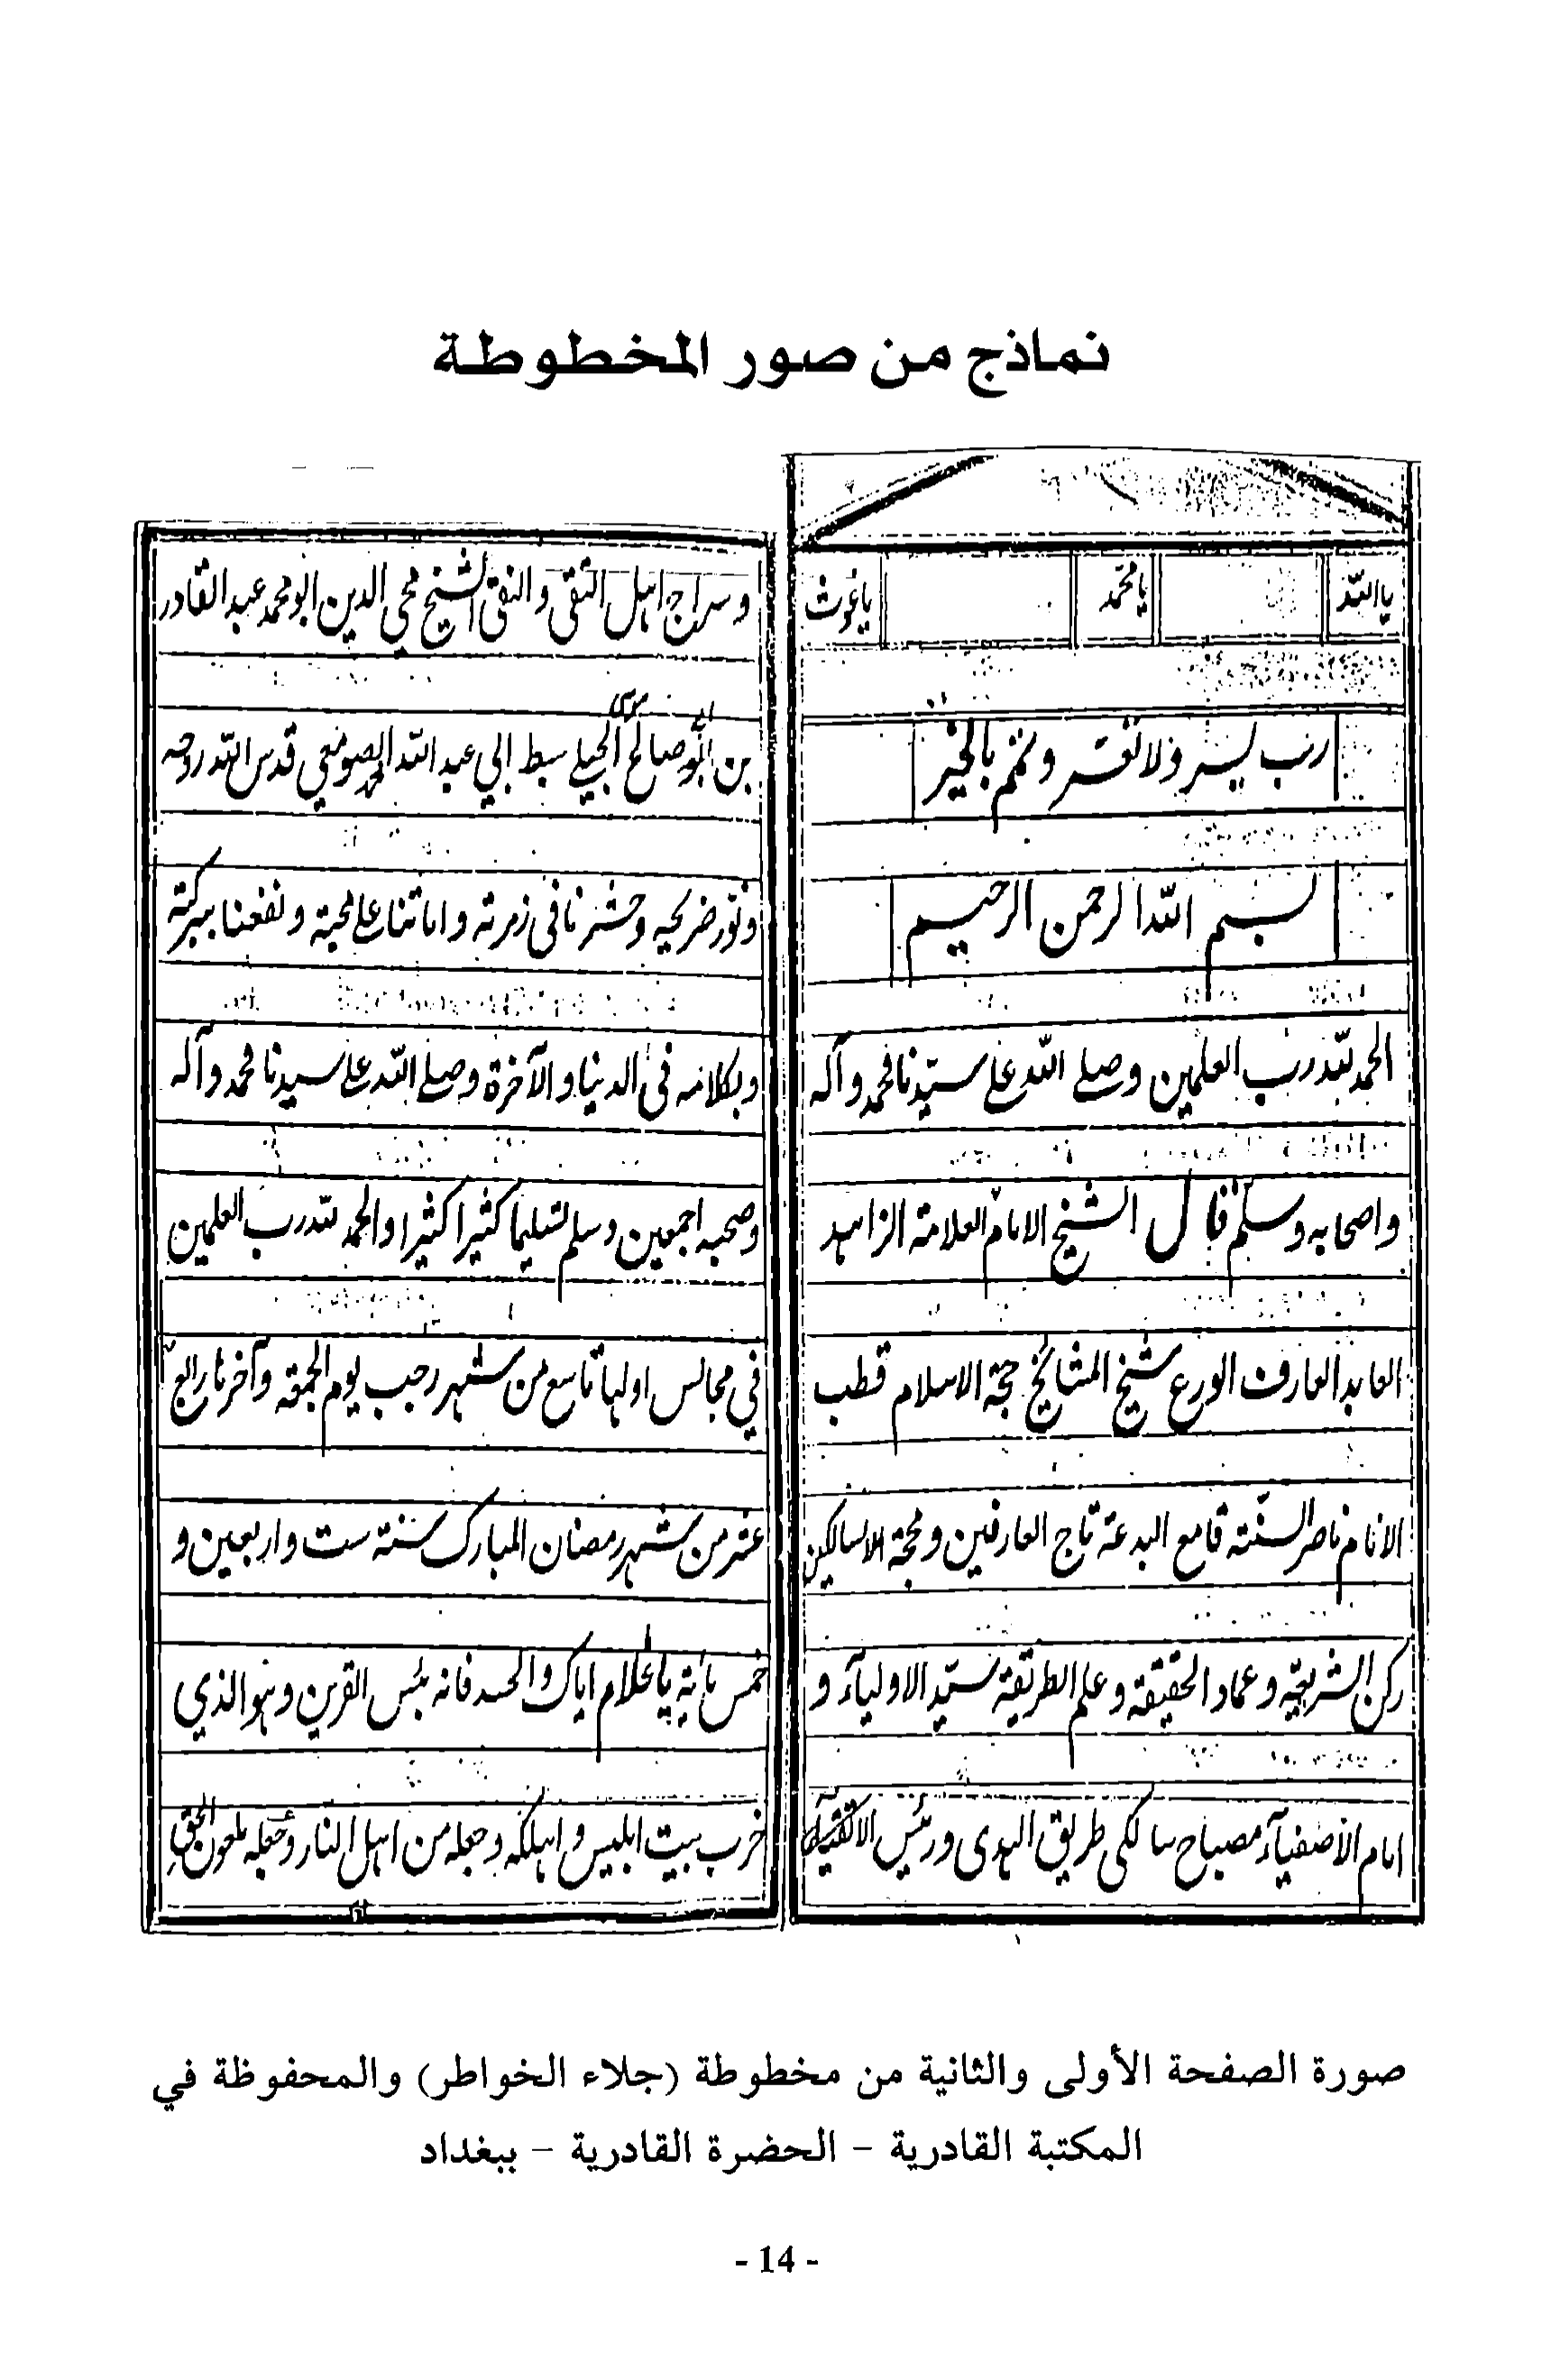 نماذج من صور المخطوطة
يا الله يا محمد يا غوث
رب يسر ولا تعسر وتمم بالخير
بسم الله الرحمن الرحيم
الحمد لله رب العلمين وصلى الله على سيدنا محمد وآله
واصحابه وسلم قال الشيخ الامام العلامة الزاهد
العابد العارف الورع شيخ المشائخ حجة الاسلام قطب
الانام ناصر السنة قامع البدعة تاج العارفين ومحجة السالكين
ركن الشريعة وعماد الحقيقة وعلم الطريقة سيد الاوليآء و
امام الأصفيآء مصباح سالكي طريق الهدى ورئيس الاتقيآء
وسراج اهل التقى والنقى الشيخ محي الدين ابو محمد عبد القادر
بن ابو صالح موسى الجيلي سبط ابي عبد الله الصومعي قدس الله روحه
ونور ضريحه وحشرنا في زمرته واماتنا على محبته ونفعنا ببركته
وبكلامه في الدنيا والآخرة وصلى الله على سيدنا محمد وآله
وصحبه اجمعين وسلم تسليما كثيرا كثيرا والحمد لله رب العلمين
في مجالس اولها تاسع من شهر رجب يوم الجمعة وآخرها رابع
عشر من شهر رمضان المبارك سنة ست واربعين و
خمس مائة يا غلام اياك والحسد فانه بئس القرين وهو الذي
خرب بيت ابليس واهلكه وجعله من اهل النار وجعله ملعون الحق
صورة الصفحة الأولى والثانية من مخطوطة (جلاء الخواطر) والمحفوظة في
المكتبة القادرية - الحضرة القادرية - ببغداد
- 14 -